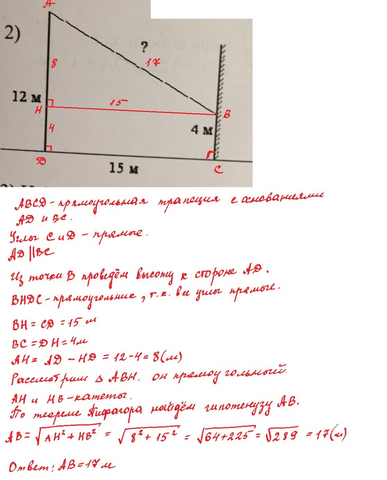 A
2)
?
8
17
12 м
15
H
B
4
4 м
D
15 м
C
ABCD - прямоугольная трапеция с основаниями
AD и BC.
Углы C и D - прямые.
AD || BC
Из точки B проведём высоту к стороне AD.
BHDC - прямоугольник, т.к. все углы прямые.
BH = CD = 15 м
BC = DH = 4м
AH = AD - HD = 12-4 = 8(м)
Рассмотрим △ ABH. он прямоугольный
AH и HB - катеты.
По теореме Пифагора найдём гипотенузу AB.
AB = √AH² + HB² = √8² + 15² = √64+225 = √289 = 17(м)
Ответ: AB = 17 м